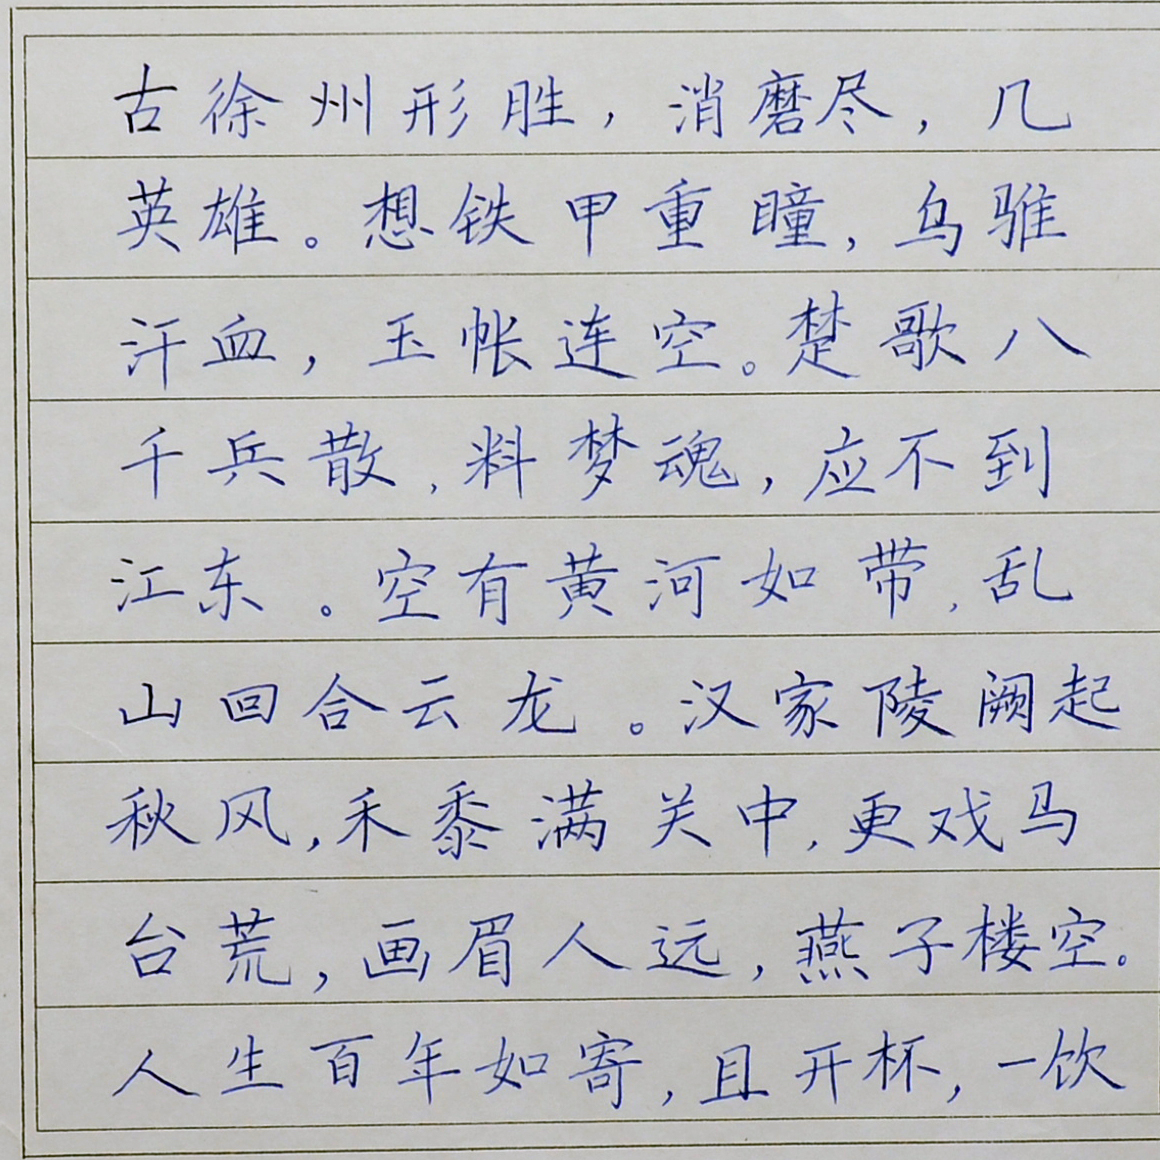 古徐州形胜，消磨尽，几
英雄。想铁甲重瞳，乌骓
汗血，玉帐连空。楚歌八
千兵散，料梦魂，应不到
江东。空有黄河如带，乱
山回合云龙。汉家陵阙起
秋风，禾黍满关中，更戏马
台荒，画眉人远，燕子楼空。
人生百年如寄，且开杯，一饮